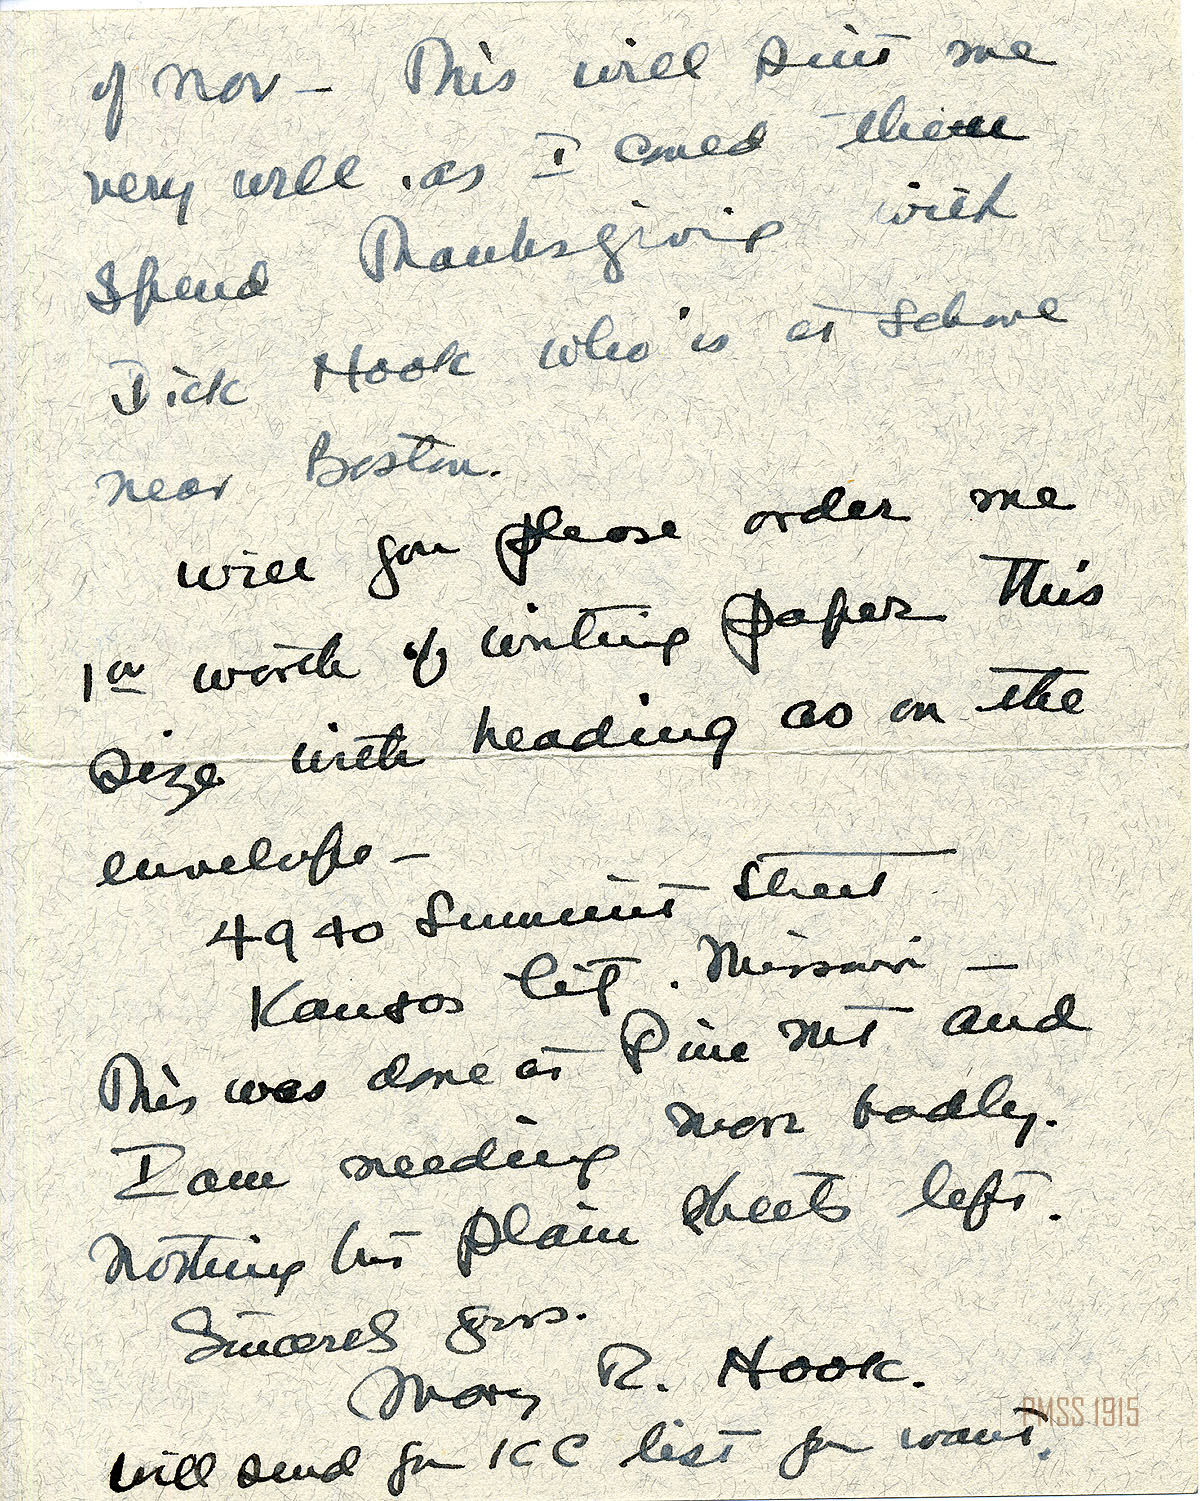 of Nov – This will suit me
very well. as I could then
spend Thanksgiving with
Dick Hook who is at school
near Boston.
Will you please order me
worth of writing paper this
size with heading as on the
envelope –
4940 Summit Street
Kansas City. Missouri –
This was done at Pine Mt and
I am needing more badly.
Nothing but plain sheets left.
Sincerely yours.
Mary R. Hook.
PMSS 1915
will send you KC list you want.